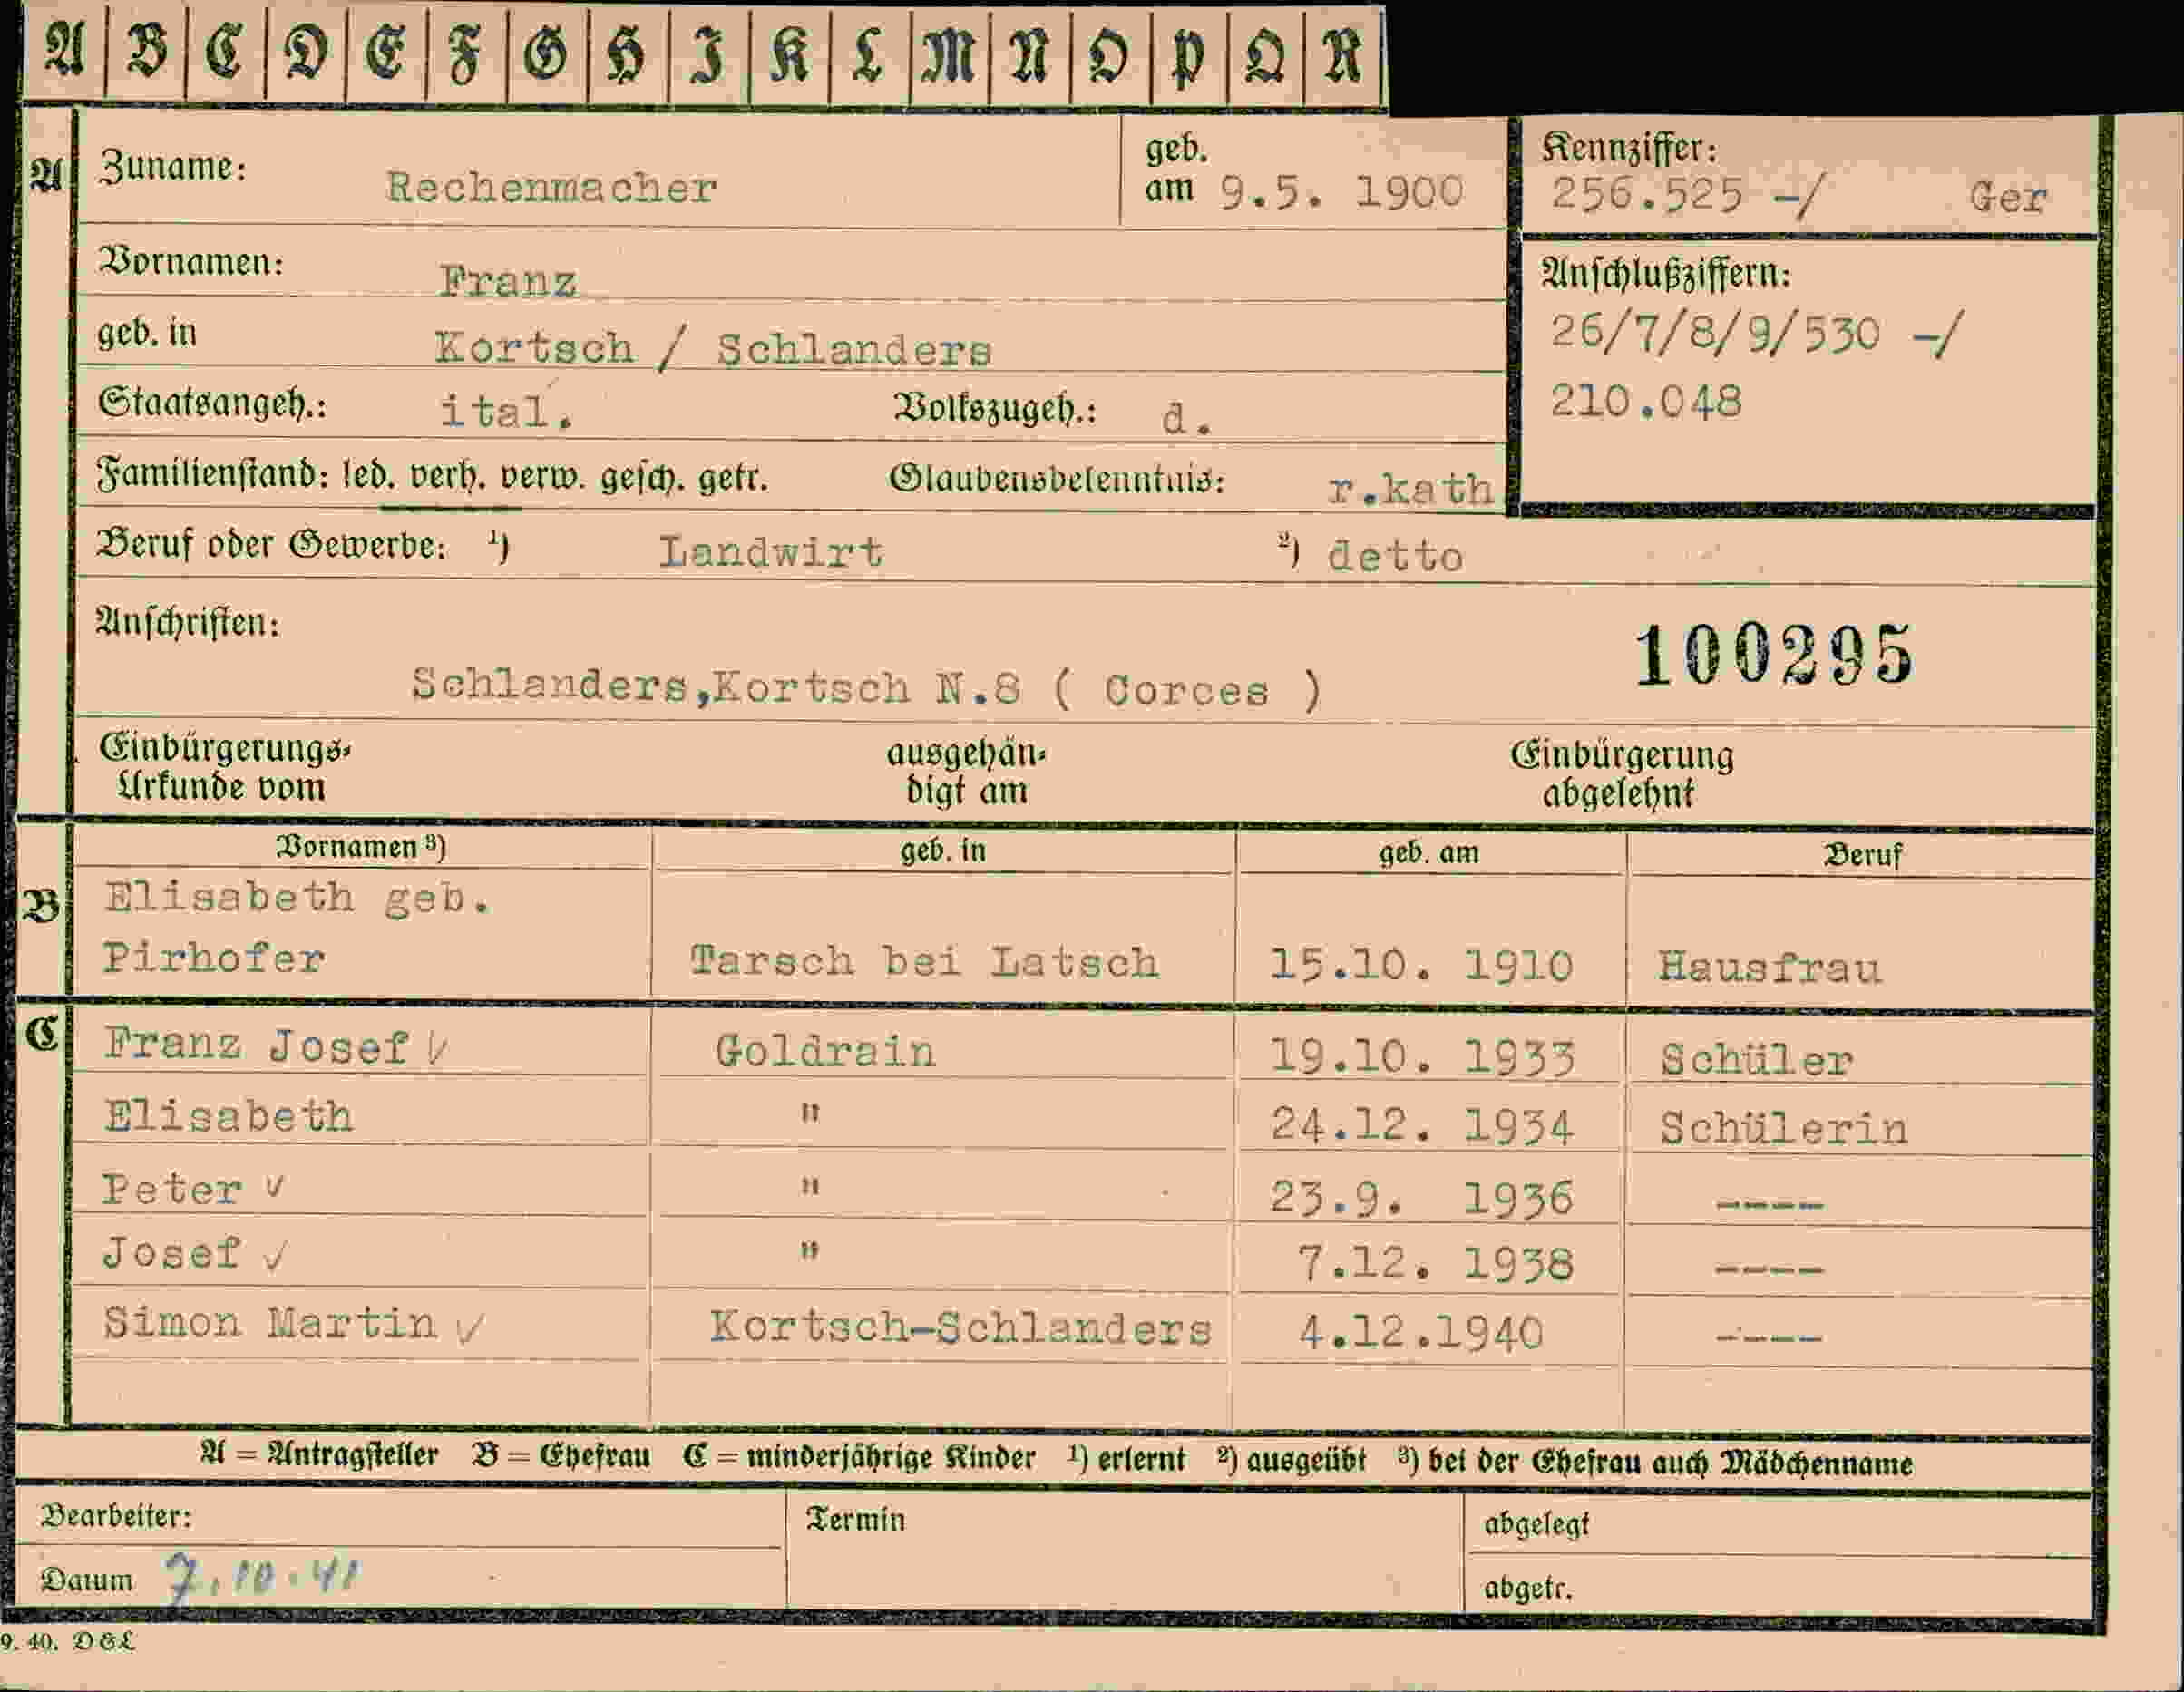 A B C D E F G H I K L M N O P Q R
A Zuname: Rechenmacher geb. am 9.5. 1900 Kennziffer: 256.525 -/ Ger
Vornamen: Franz
geb. in Kortsch / Schlanders
Anschlußziffern:
26/7/8/9/530 -/
210.048
Staatsangeh.: ital. Volkszugeh.: d.
Familienstand: led. verh. verw. gesch. getr. Glaubensbekenntnis: r.kath
Beruf oder Gewerbe: ¹) Landwirt ²) detto
Anschriften:
100295
Schlanders,Kortsch N.8 ( Corces )
Einbürgerungs- ausgehän- Einbürgerung
Urkunde vom digt am abgelehnt
Vornamen ³) geb. in geb. am Beruf
B Elisabeth geb.
Pirhofer Tarsch bei Latsch 15.10. 1910 Hausfrau
C Franz Josef ✓ Goldrain 19.10. 1933 Schüler
Elisabeth " 24.12. 1934 Schülerin
Peter ✓ " 23.9. 1936 ----
Josef ✓ " 7.12. 1938 ----
Simon Martin ✓ Kortsch-Schlanders 4.12.1940 ----
A = Antragsteller B = Ehefrau C = minderjährige Kinder ¹) erlernt ²) ausgeübt ³) bei der Ehefrau auch Mädchenname
Bearbeiter: Termin abgelegt
Datum 7.10.41 abgetr.
9. 40. D&L